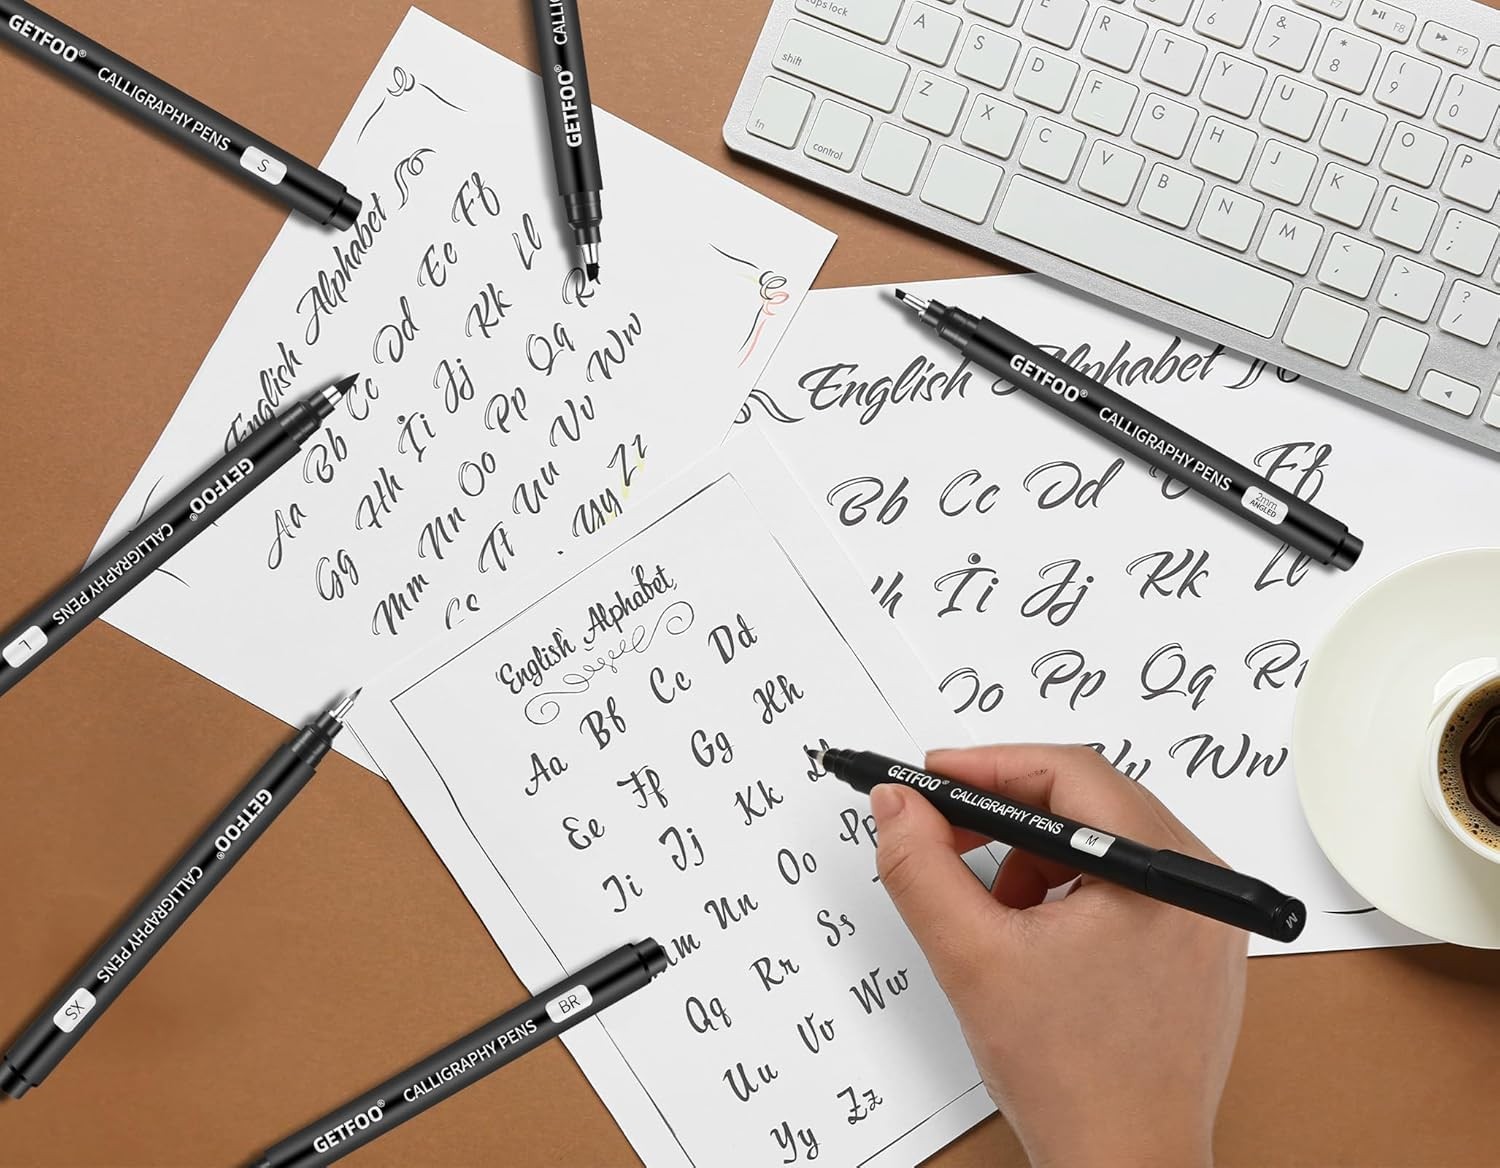 GETFOO® CALLIGRAPHY PENS S
GETFOO® CALLI
English Alphabet
Aa Bb Cc Dd Ee Ff
Gg Hh Ii Jj Kk Ll
Mm Nn Oo Pp Qq R
Tt Uu Vv Ww
yy Zz
GETFOO® CALLIGRAPHY PENS L
GETFOO® CALLIGRAPHY PENS XS
GETFOO® CALLIGRAPHY PENS BR
English Alphabet
Aa Bb Cc Dd
Ee Ff Gg Hh
Ii Jj Kk
Nn Oo Pp
Qq Rr Ss
Uu Vv Ww
Yy Zz
GETFOO® CALLIGRAPHY PENS M
M
GETFOO® CALLIGRAPHY PENS 2mm ANGLED
English Alphabet
Bb Cc Dd Ff
Ii Jj Kk Ll
Pp Qq Rr
Ww
caps lock A S D F G H J K L ; :
shift Z X C V B N M < , > . ? /
fn control
E R T Y U I O P
6 & 7 * 8 ( 9 ) 0
F7 F8 F9